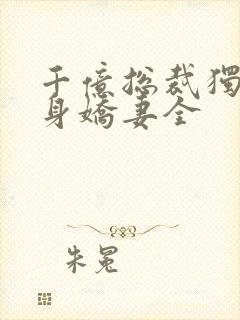 千億總裁獨
身嬌妻全
朱冕